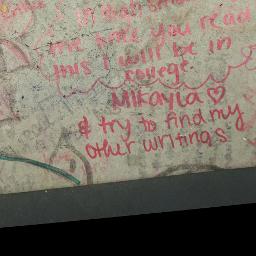 in that
time
you read
this I will be in
college
Mikayla ♡
& try to find my
other writings